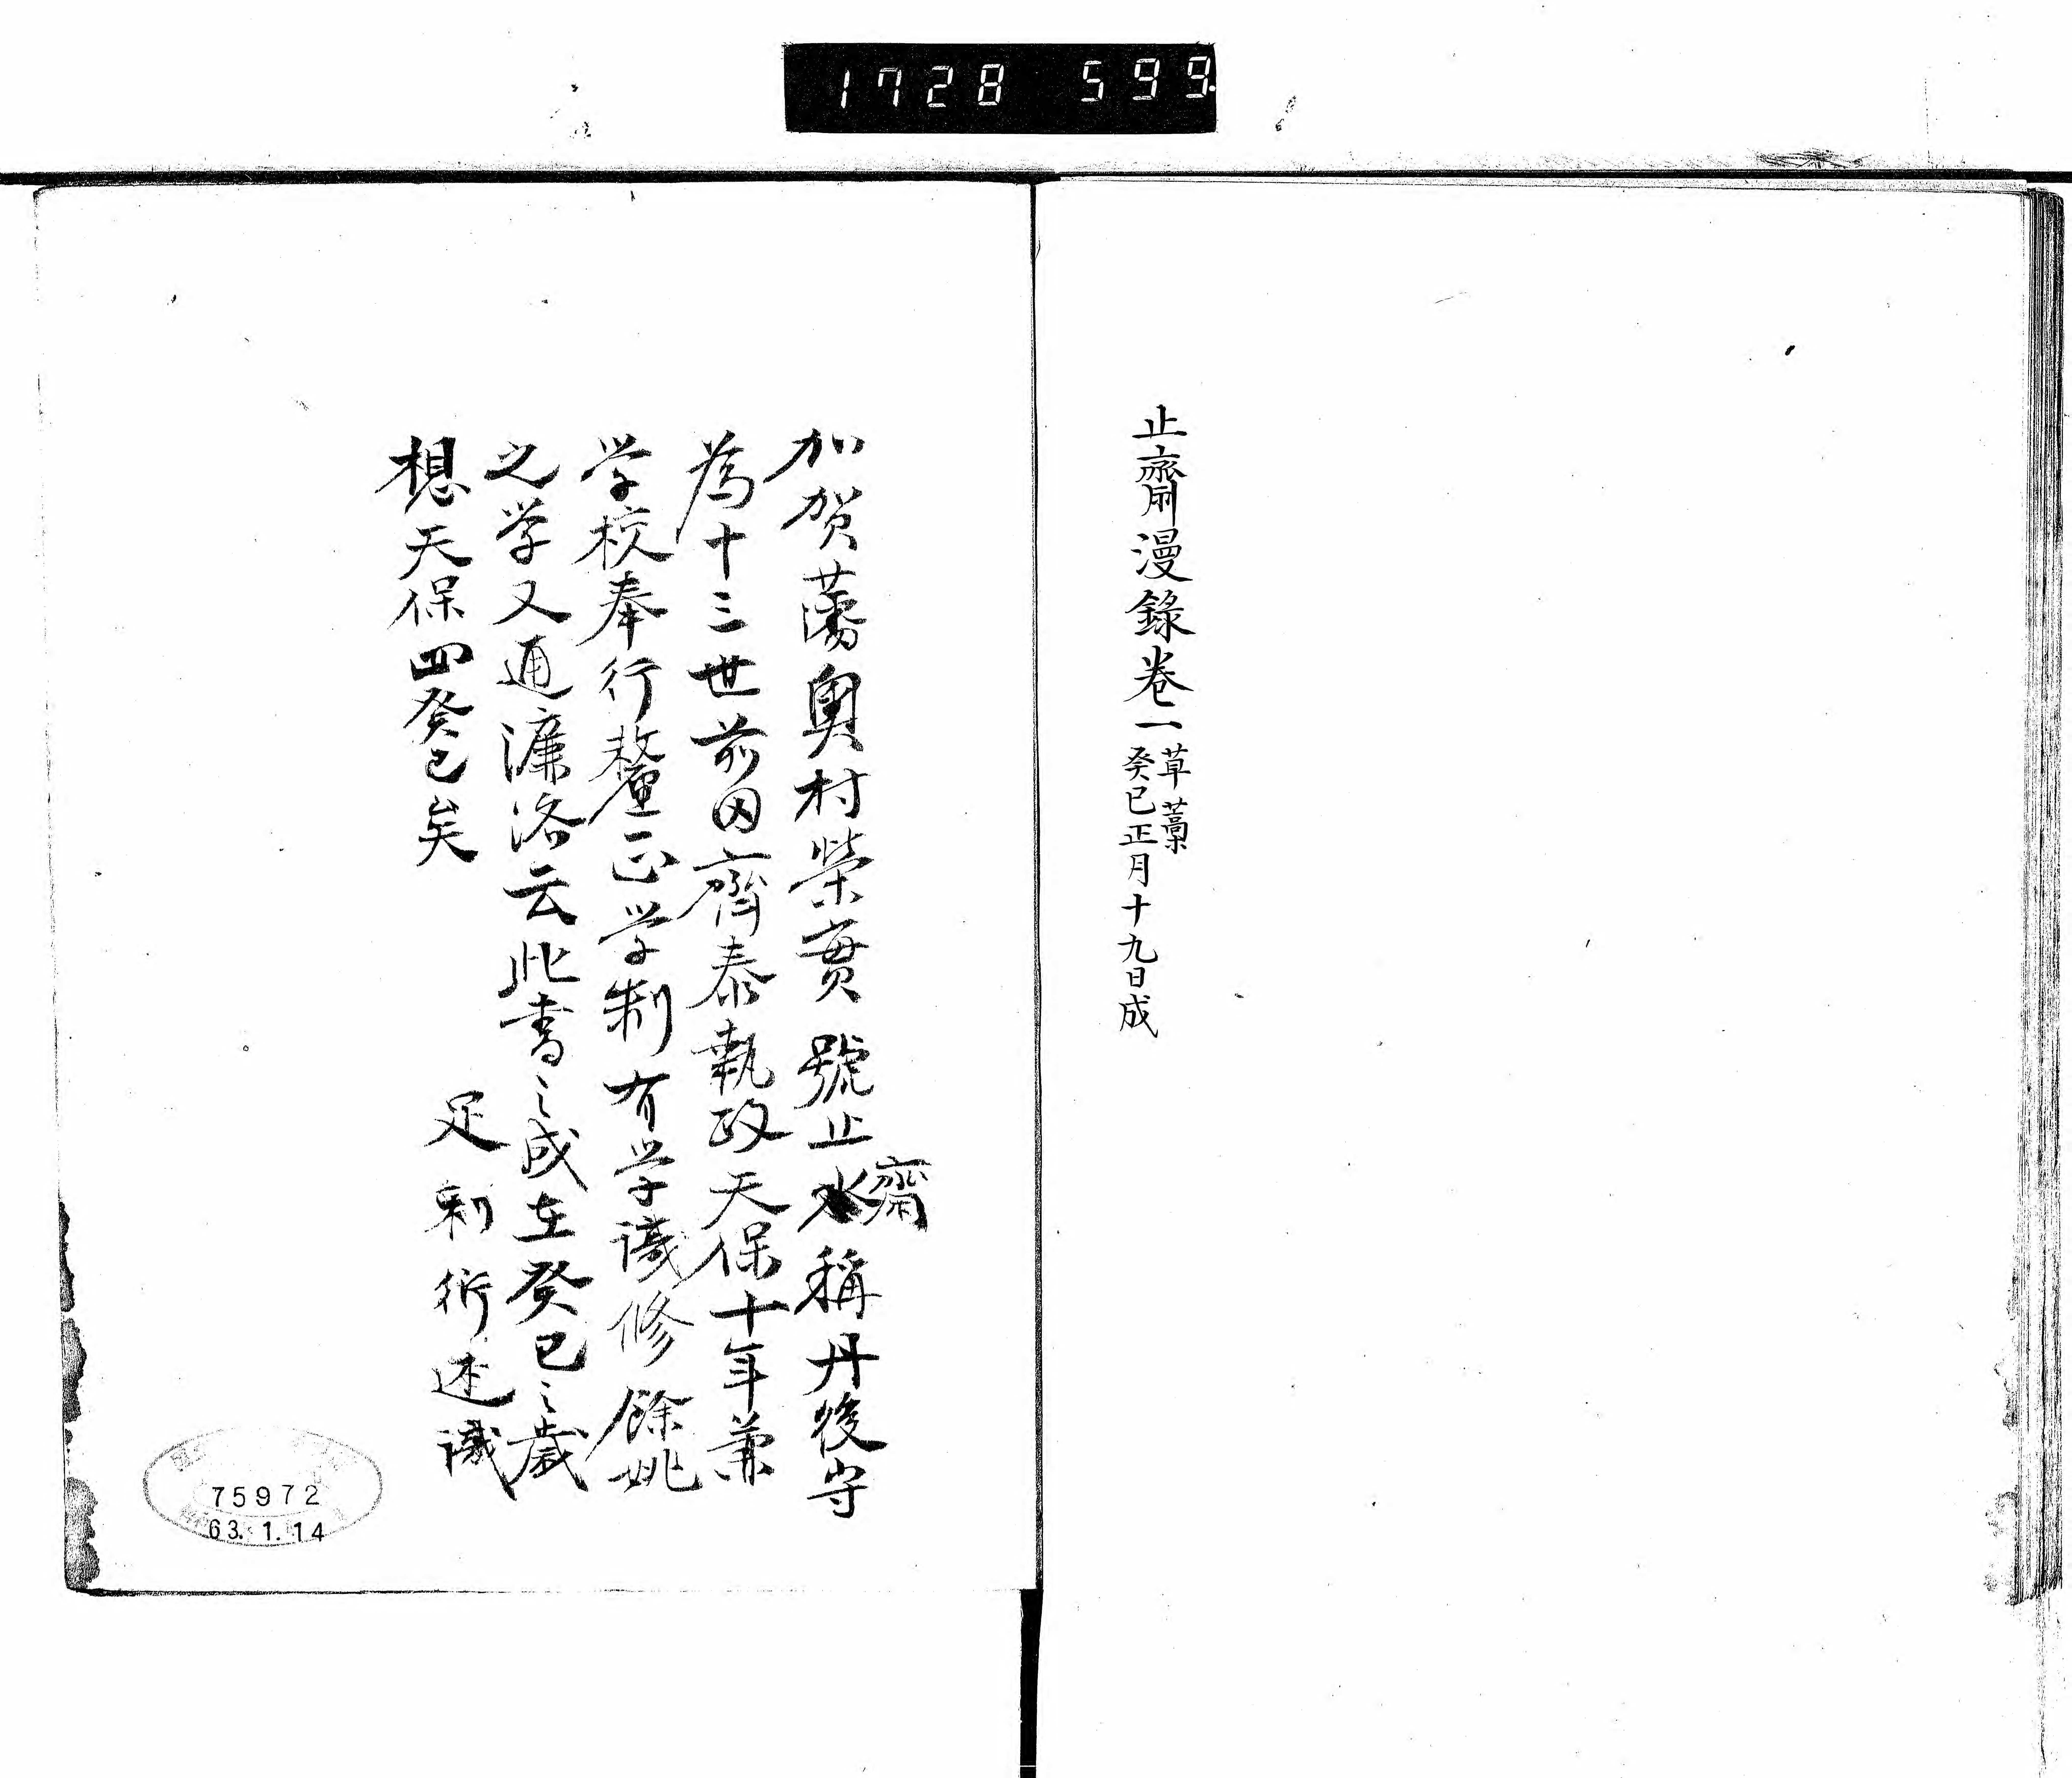 1728 599
止齋漫錄卷一
草藁
癸巳正月十九日成
加賀藩奥村榮實號止水稱丹後守
齋
為十三世前田齊泰執政天保十年兼
学校奉行釐正学制有学識修餘姚
之学又通濂洛云此書之成在癸巳之歳
想天保四癸巳矣
足利衍述識
75972
63.1.14